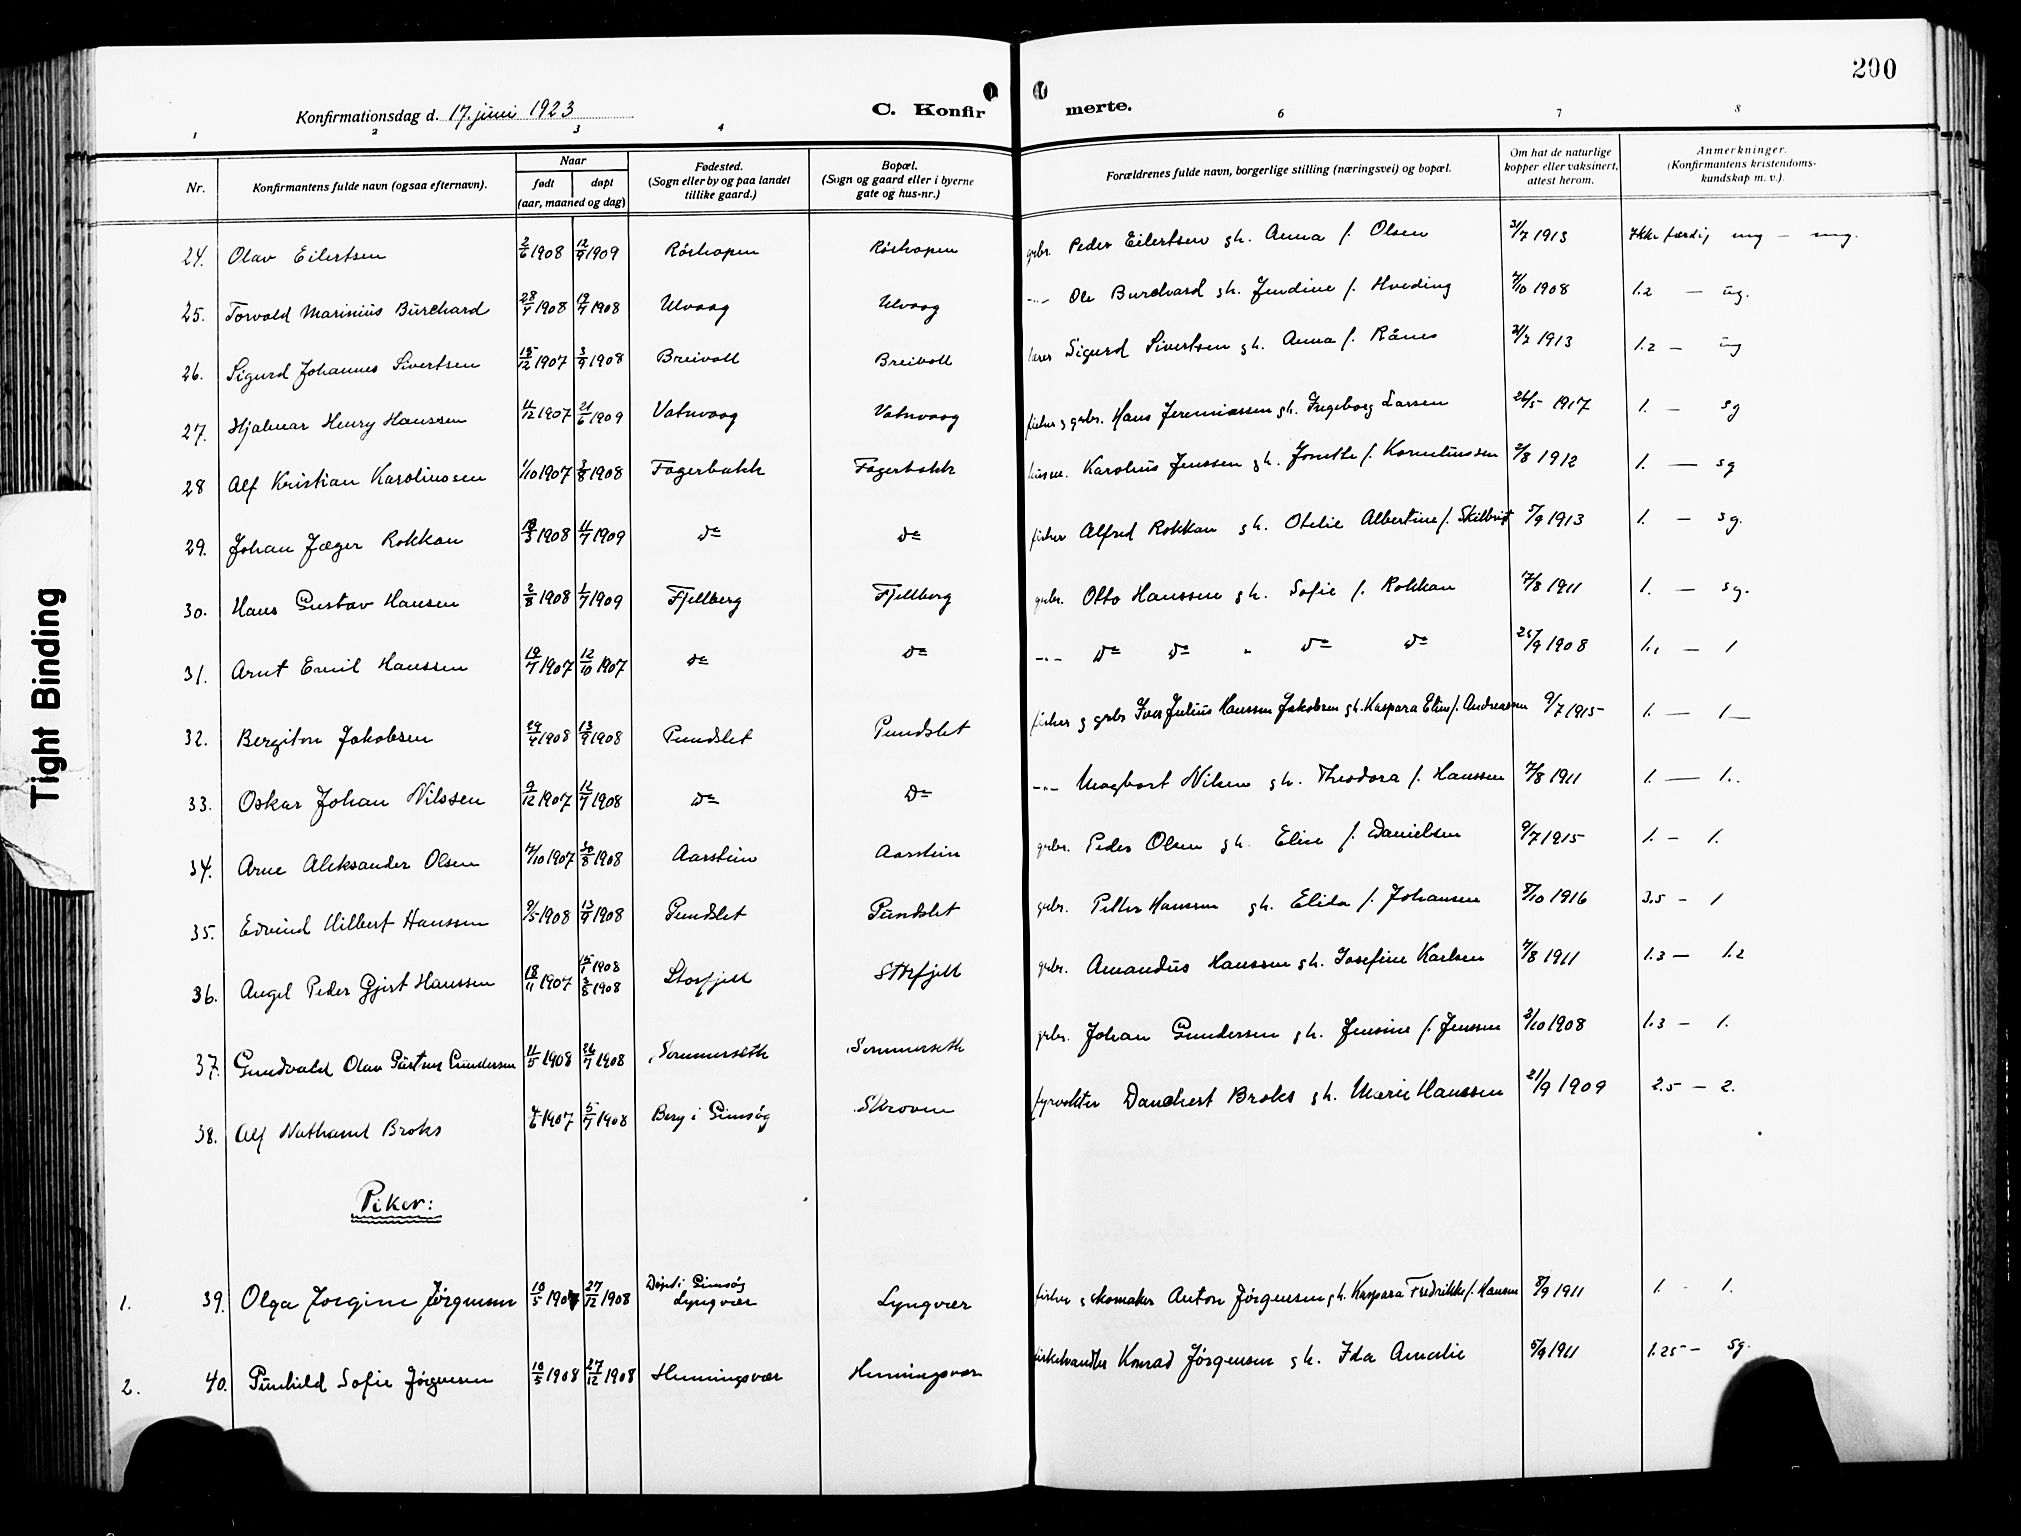 200
Konfirmationsdag d. 17. juni 1923
C. Konfirmerte.
1 2 3 4 6 7 8
Nr. Konfirmantens fulde navn (ogsaa efternavn). Naar født døpt (aar, maaned og dag) Fødested. (Sogn eller by og paa landet tillike gaard.) Bopæl. (Sogn og gaard eller i byerne gate og hus-nr.) Forældrenes fulde navn, borgerlige stilling (næringsvei) og bopæl. Om hat de naturlige kopper eller vaksinert, attest herom. Anmerkninger. (Konfirmantens kristendoms-kundskap m. v.).
24. Olav Eilertsen 2/6 1908 12/9 1909 Rörhopen Rörhopen grbr. Peder Eilertsen gh. Anna f. Olsen 3/7 1913 Ikke færdig mg — mg.
25. Torvald Marinius Burchard 28/4 1908 19/7 1908 Ulvaag Ulvaag -"- Ole Burchard gh. Jendine f. Hveding 7/10 1908 1.2 — ug.
26. Sigurd Johannes Sivertsen 15/12 1907 3/9 1908 Breivoll Breivoll lærer Sigurd Sivertsen gh. Anna f. Rånes 21/7 1913 1.2 — ug
27. Hjalmar Henry Hanssen 11/12 1907 21/6 1909 Vatnvaag Vatnvaag fisker g grbr. Hans Jeremiassen gh. Ingeborg Larsen 26/5 1917 1. — sg
28 Alf Kristian Karoliussen 1/10 1907 3/8 1908 Fagerbakk Fagerbakk Karolius Jenssen gh. f. Korneliussen 2/8 1912 1. — sg
29. Johan Jæger Rokkan 19/3 1908 11/7 1909 do do fisker Alfred Rokkan gh. Otelie Albertine f. Skilbrigt 5/9 1913 1. — sg.
30. Hans Gustav Hansen 2/8 1908 1/7 1909 Fjellberg Fjellberg grbr. Otto Hanssen gh. Sofie f. Rokkan 7/8 1911 1. — sg.
31. Arnt Emil Hanssen 19/7 1907 12/10 1907 do do -"- do do " do do 25/9 1908 1. — 1
32. Bergiton Jakobsen 29/4 1908 13/9 1908 Pundslet Pundslet fisker g grbr Iver Julius Hanssen Jakobsen gh. Kaspara Elen f. Andreassen 9/7 1915 1. — 1 —
33. Oskar Johan Nilssen 9/12 1907 12/7 1908 do do -"- Magbart Nilsen gh. Theodora f. Hanssen 7/8 1911 1. — 1.
34. Arne Aleksander Olsen 14/10 1907 30/8 1908 Aarstein Aarstein grbr. Peder Olsen gh. Elise f. Danielsen 9/7 1915 1. – 1.
35. Edvind Hilbert Hanssen 9/5 1908 13/9 1908 Pundslet Pundslet grbr. Petter Hanssen gh. Elida f. Johansen 8/10 1916 3.5 – 1
36. Angel Peder Gjert Hanssen 18/11 1907 15/1 1908 3/8 1908 Storfjell Storfjell grbr. Amandus Hanssen gh. Josefine Karlsen 7/8 1911 1.3 — 1.2
37. Gundvald Olav Gustav Gundersen 11/5 1908 26/7 1908 Sommerseth Sommerseth grbr. Johan Gundersen gh. Jensine f. Jenssen 3/10 1908 1.3 – 1.
38. Alf Nathanel Broks 4/6 1907 5/7 1908 Berg i Gimsøy Skroven fyrvokter Danchert Broks gh. Marie Hanssen 21/9 1909 2.5 – 2.
Piker:
1. 39. Olga Jorgine Jørgensen 10/5 1907 27/12 1908 Døpt i Gimsøy Lyngvær Lyngvær fisker g skomaker Anton Jørgensen gh. Kaspara Fredrikke f. Hansen 8/9 1911 1. - 1.
2. 40. Gunhild Sofie Jørgensen 10/5 1908 27/12 1908 Henningsvær Henningsvær fiskehandler Konrad Jørgensen gh. Ida Amalie 5/9 1911 1.25 – sg.
Tight Binding